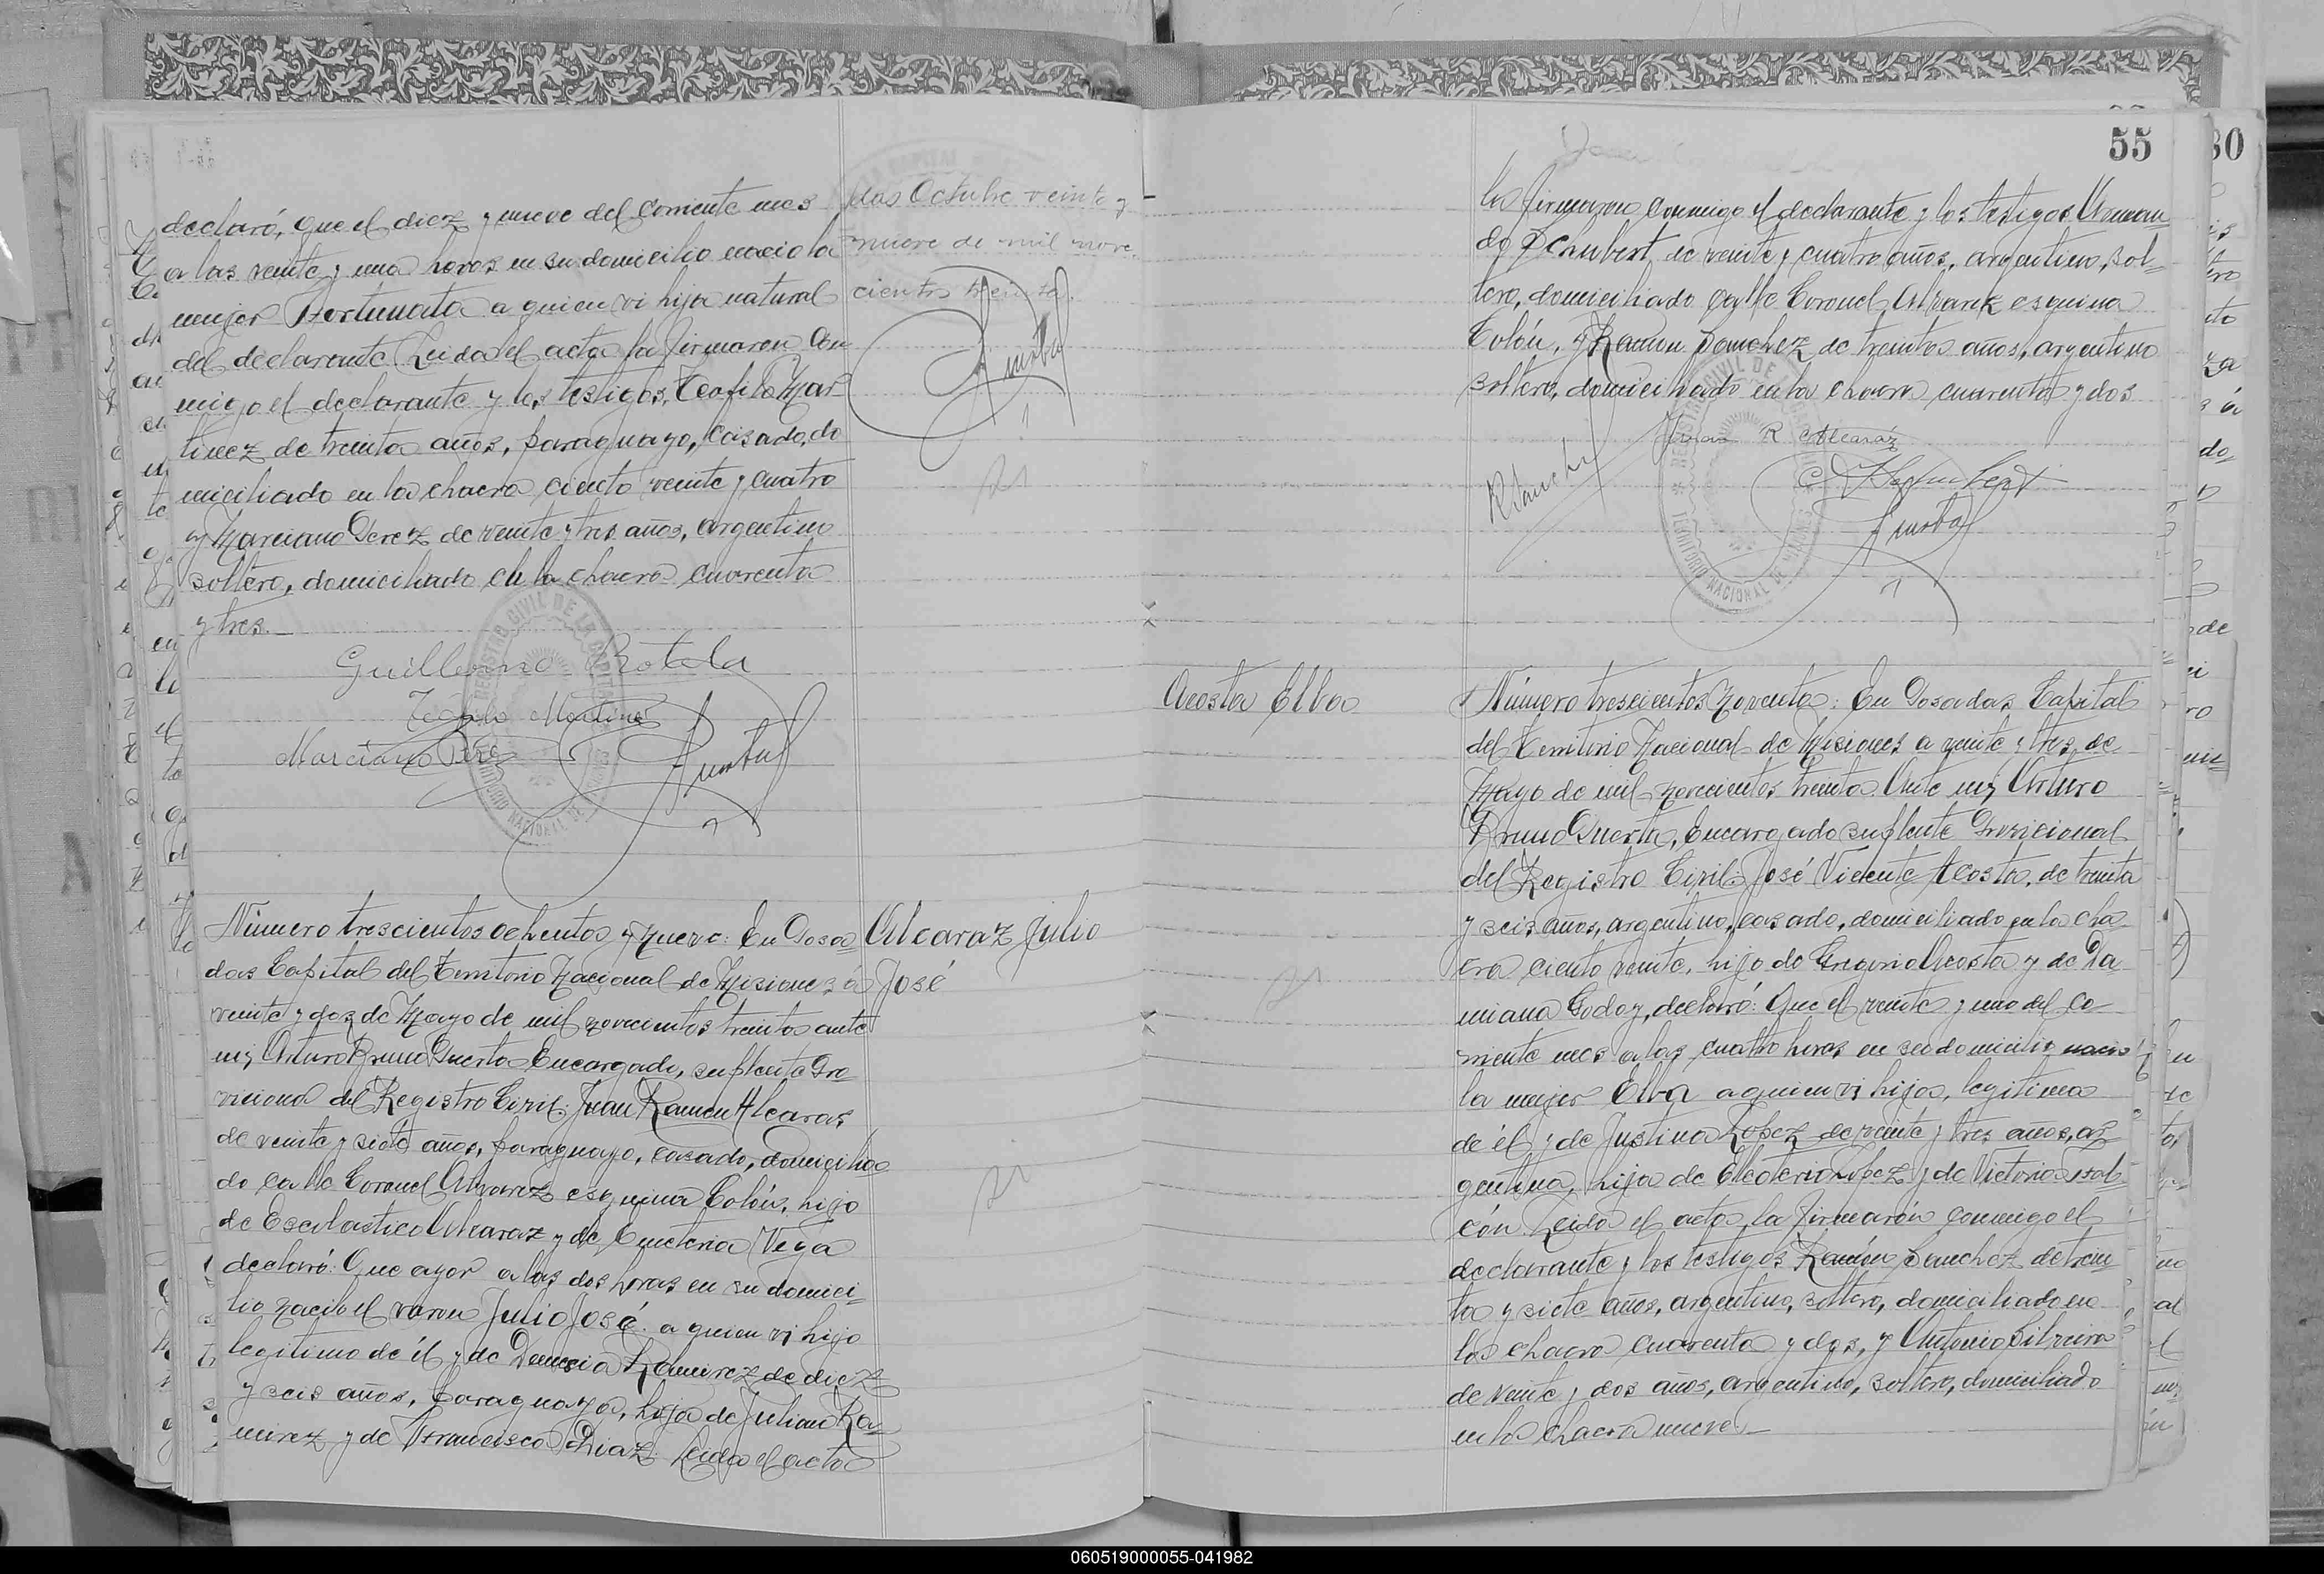 declaró, que el diez y nueve del corriente mes
a las veinte y una horas en su domicilio nacio la
mujer Fortunata a quien vi hija natural
del declarante Leida el acta la firmaron con
migo el declarante y los testigos, Teofilo Mar
tinez de treinta años, paraguayo, casado, do
miciliado en la chacra ciento veinte y cuatro
y Marciano Perez de veinte y tres años, argentino
soltero, domiciliado en la chacra cuarenta
y tres.
das Octubre veinte y
nueve de mil nove
cientos treinta.
Guillermo Rotela
Teófilo Martinez
Marciano Perez
REGISTRO CIVIL DE LA CAPITAL
TERRITORIO NACIONAL DE MISIONES
Número trescientos ochenta y nueve: En Posa
das Capital del Territorio Nacional de Misiones a
veinte y dos de Mayo de mil novecientos treinta ante
mi, Arturo Bruno Puerta Encargado, suplente Pro
vicional del Registro Civil: Juan Ramon Alcaras
de veinte y siete años, paraguayo, casado, domicilia
do calle Coronel Alvarez esquina Colón, hijo
de Escolastico Alcaraz y de Emeteria Vega
declaró: Que ayer a las dos horas en su domici-
lio nacio el varon Julio José a quien vi hijo
legitimo de él y de Ramirez de diez
y seis años, paraguaya, hija de Julian Ra-
mirez y de Francisca Diaz. Leida el acta
Alcaraz Julio
José
55
30
la firmaron conmigo el declarante y los testigos Arman
do Schubert, de veinte y cuatro años, argentino, sol-
tero, domiciliado calle Coronel Alvarez esquina
Colón, y Ramon Sanchez de treinta años, argentino
soltero, domiciliado en la chacra cuarenta y dos
Juan R Alcaráz
R Sanchez
A Schubert
REGISTRO CIVIL DE LA
TERRITORIO NACIONAL DE MISIONES
Acosta Elba
Número trescientos noventa: En Posadas Capital
del Territorio Nacional de Misiones a veinte y tres de
Mayo de mil novecientos treinta. Ante mi, Arturo
Bruno Puerta, Encargado suplente Provicional
del Registro Civil: José Vicente Acosta, de treinta
y seis años, argentino, casado, domiciliado en la cha
cra ciento veinte, hijo de Gregorio Acosta y de Da
miana Godoy, declaró: Que el veinte y uno del co-
rriente mes a las cuatro horas en su domicilio nacio
la mujer Elba a quien vi hija, legitima
de él y de Justina Lopez de veinte y tres años, ar
gentina, hija de Eleoterio Lopez y de Victoria
cón. Leida el acta la firmarón conmigo el
declarante y los testigos Ramón Sanchez de trein
ta y siete años, argentino, soltero, domiciliado en
la chacra cuarenta y dos, y Antonio Silveira
de veinte y dos años, argentino, soltero, domiciliado
en la chacra nueve.
060519000055-041982